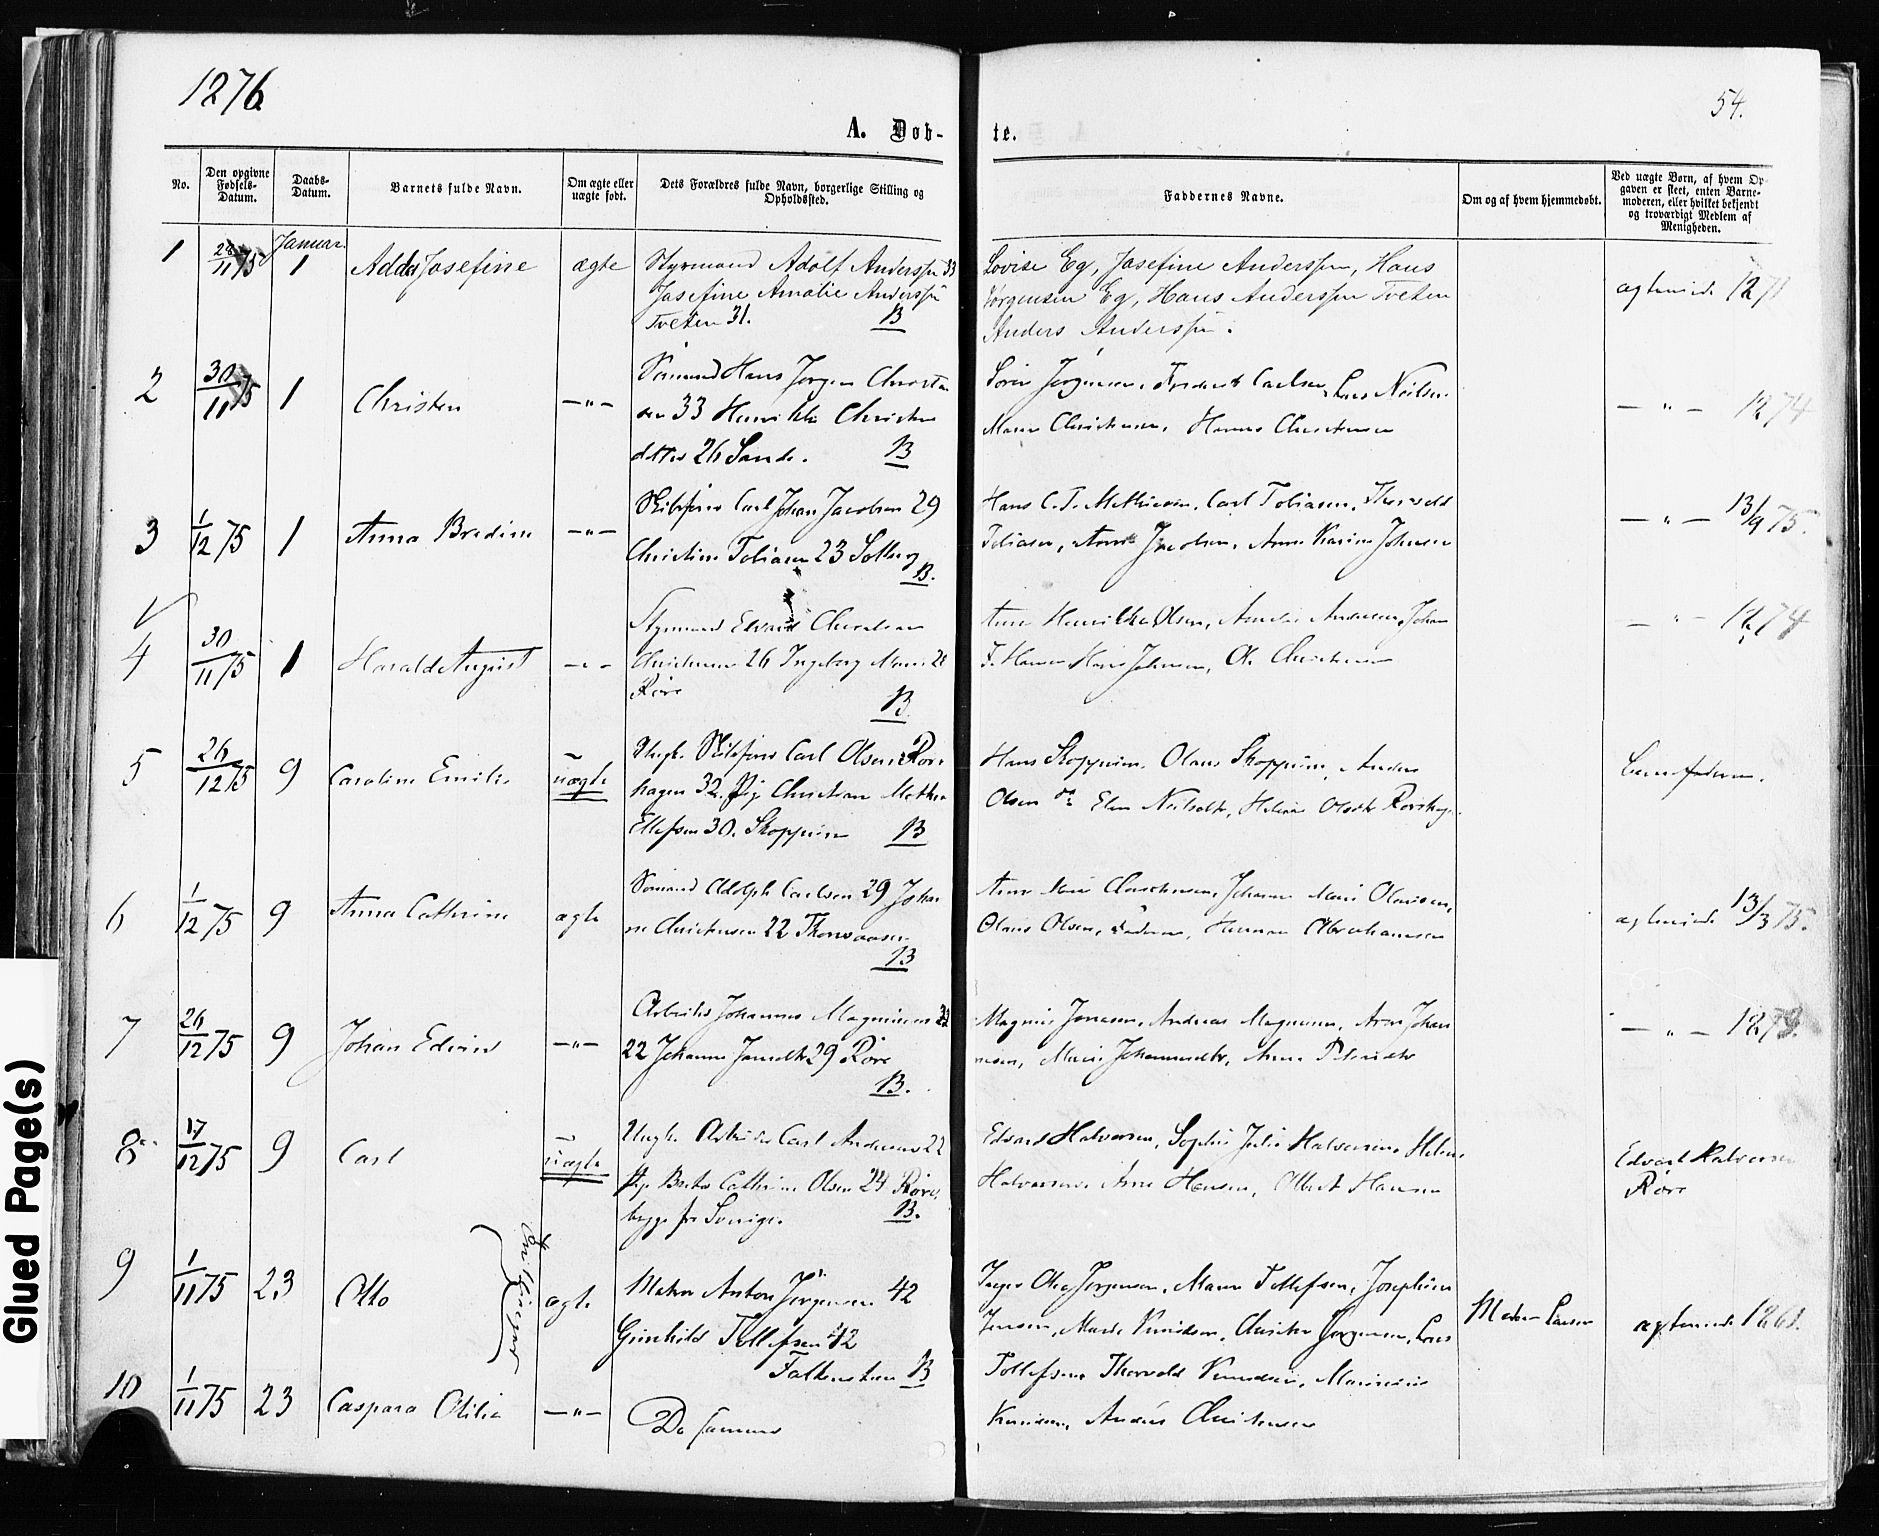 1876
54.
A. Døb-
te.
No.
Den opgivne Fødsels-Datum.
Daabs-Datum.
Barnets fulde Navn.
Om ægte eller uægte født.
Dets Forældres fulde Navn, borgerlige Stilling og Opholdssted.
Faddernes Navne.
Om og af hvem hjemmedøbt.
Ved uægte Børn, af hvem Op-
gaven er skeet, enten Barne-
moderen, eller hvilket bekjendt
og troværdigt Medlem af
Menigheden.
Januar.
1 28/11 75 1 Adda Josefine ægte
Styrmand Adolf Anderssen 33
Josefine Amalie Anderssen
Tveten 31. B
Lovise Eg, Josefine Anderssen, Hans
Jørgensen Eg, Hans Anderssen Tveten
Anders Anderssen.
ægteviede 1871
2 30/11 75 1 Christen —"—
Sømand Hans Jørgen Christen
sen 33 Henrikke Christens
datter 26 Sande. B
Søren Jørgensen, Frederik Carlsen, Lars Neilsen
Maren Christensen, Hanna Christensen
—"— 1874
3 1/12 75 1 Anna Bredine —"—
Skibsfører Carl Johan Jacobsen 29
Christine Tobiasen 23 Solberg
B.
Hans C. T. Mathiesen, Carl Tobiasen, Thorvald
Tobiasen, Anne Jacobsen, Anne Karine Johnsen
—"— 13/9 75.
4 30/11 75 1 Harald August —"—
Styrmand Edvard Christian
Christensen 26 Ingeborg Marie 26
Røre
B
Anne Henrikke Olsen, Amalie Andersen, Johan
F. Hansen Hans Johnsen, Ole Christensen
—"— 1874
5 26/12 75 9 Caroline Emilie uægte
Ungk. Skibsfører Carl Olsen Rørs
hagen 32. Pige Christiane Mathea
Ellefsen 30. Skoppum B
Hans Skoppum, Olaus Skoppum, Anders
Olsen og Elen Neilsdtr, Helene Olsdtr Rørshagen
Barnefaderen.
6 1/12 75 9 Anna Cathrine ægte
Sømand Adolph Carlsen 29 Johan
ne Christensen 22 Thorsaasen
B
Anne Marie Christensen, Johanne Marie Olausen,
Olaus Olsen, Faderen, Herman Abrahamsen
ægteviede 13/3 75.
7 26/12 75 9 Johan Edvin —"—
Arbeider Johannes Magnussen
22 Johanne Jansdtr 29 Røre
B.
Magnus Jonasen, Andreas Magnussen, Aron Johan
nesen, Marie Johannesdtr, Anna Petersdtr
—"— 1873.
8 17/12 75 9 Carl uægte
Ungk. Arbeider Carl Andersen 22
Pige Berthe Cathrine Olsen 24 Røre,
begge fra Sverige. B.
Edvard Halvorsen, Sophie Julie Halvorsen, Helene
Halvorsen, Anne Hansen, Albert Hansen
Edvard Halvorsen
Røre
9 1/11 75 23 Otto ægte
Tvillinger
Matros Anton Jørgensen 42
Gunhild Tollefsen 42
Falkensten B
Inger Olea Jørgensen, Maren Tollefsen, Josephine
Jensen, Marthe Knudsen, Christen Jørgensen, Lars
Tollefsen, Thorvald Knudsen,
Knudsen, Anders Christensen
Larsen
ægteviede 1861.
10 1/11 75 23 Caspara Otilia —"—
De samme